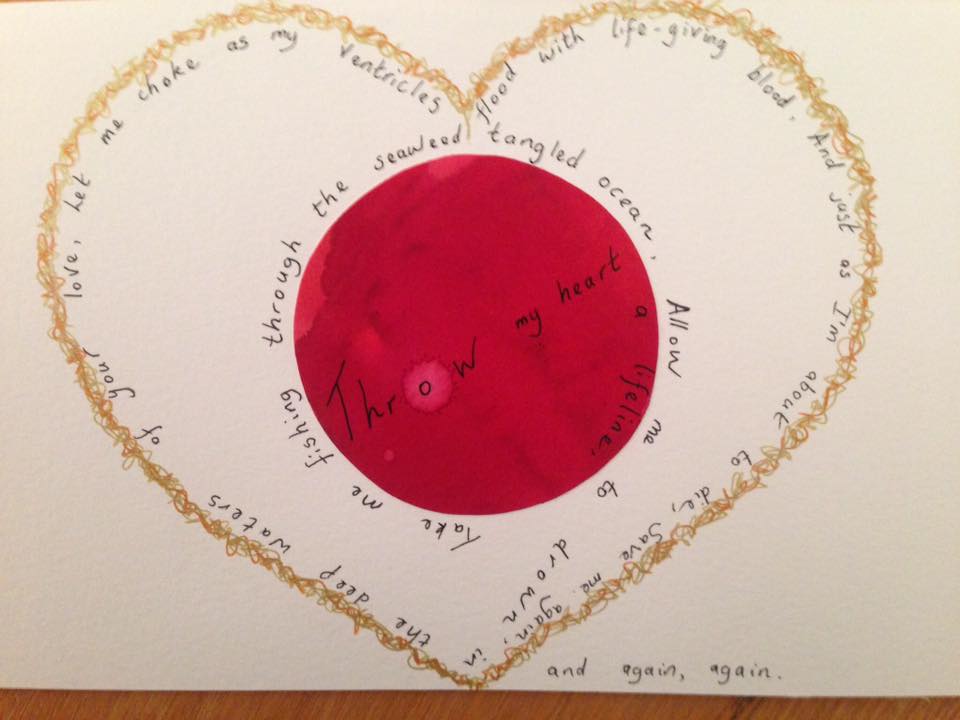 Throw my heart
a lifeline,
Take me fishing through the seaweed tangled ocean,
Allow me to drown
in the deep waters of your love, Let me choke as my ventricles
flood with life-giving blood. And just as I'm about to die, Save me again,
and again, again.